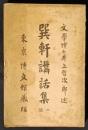 文學博士井上哲次郎述
巽軒講話集
東京 博文館藏版